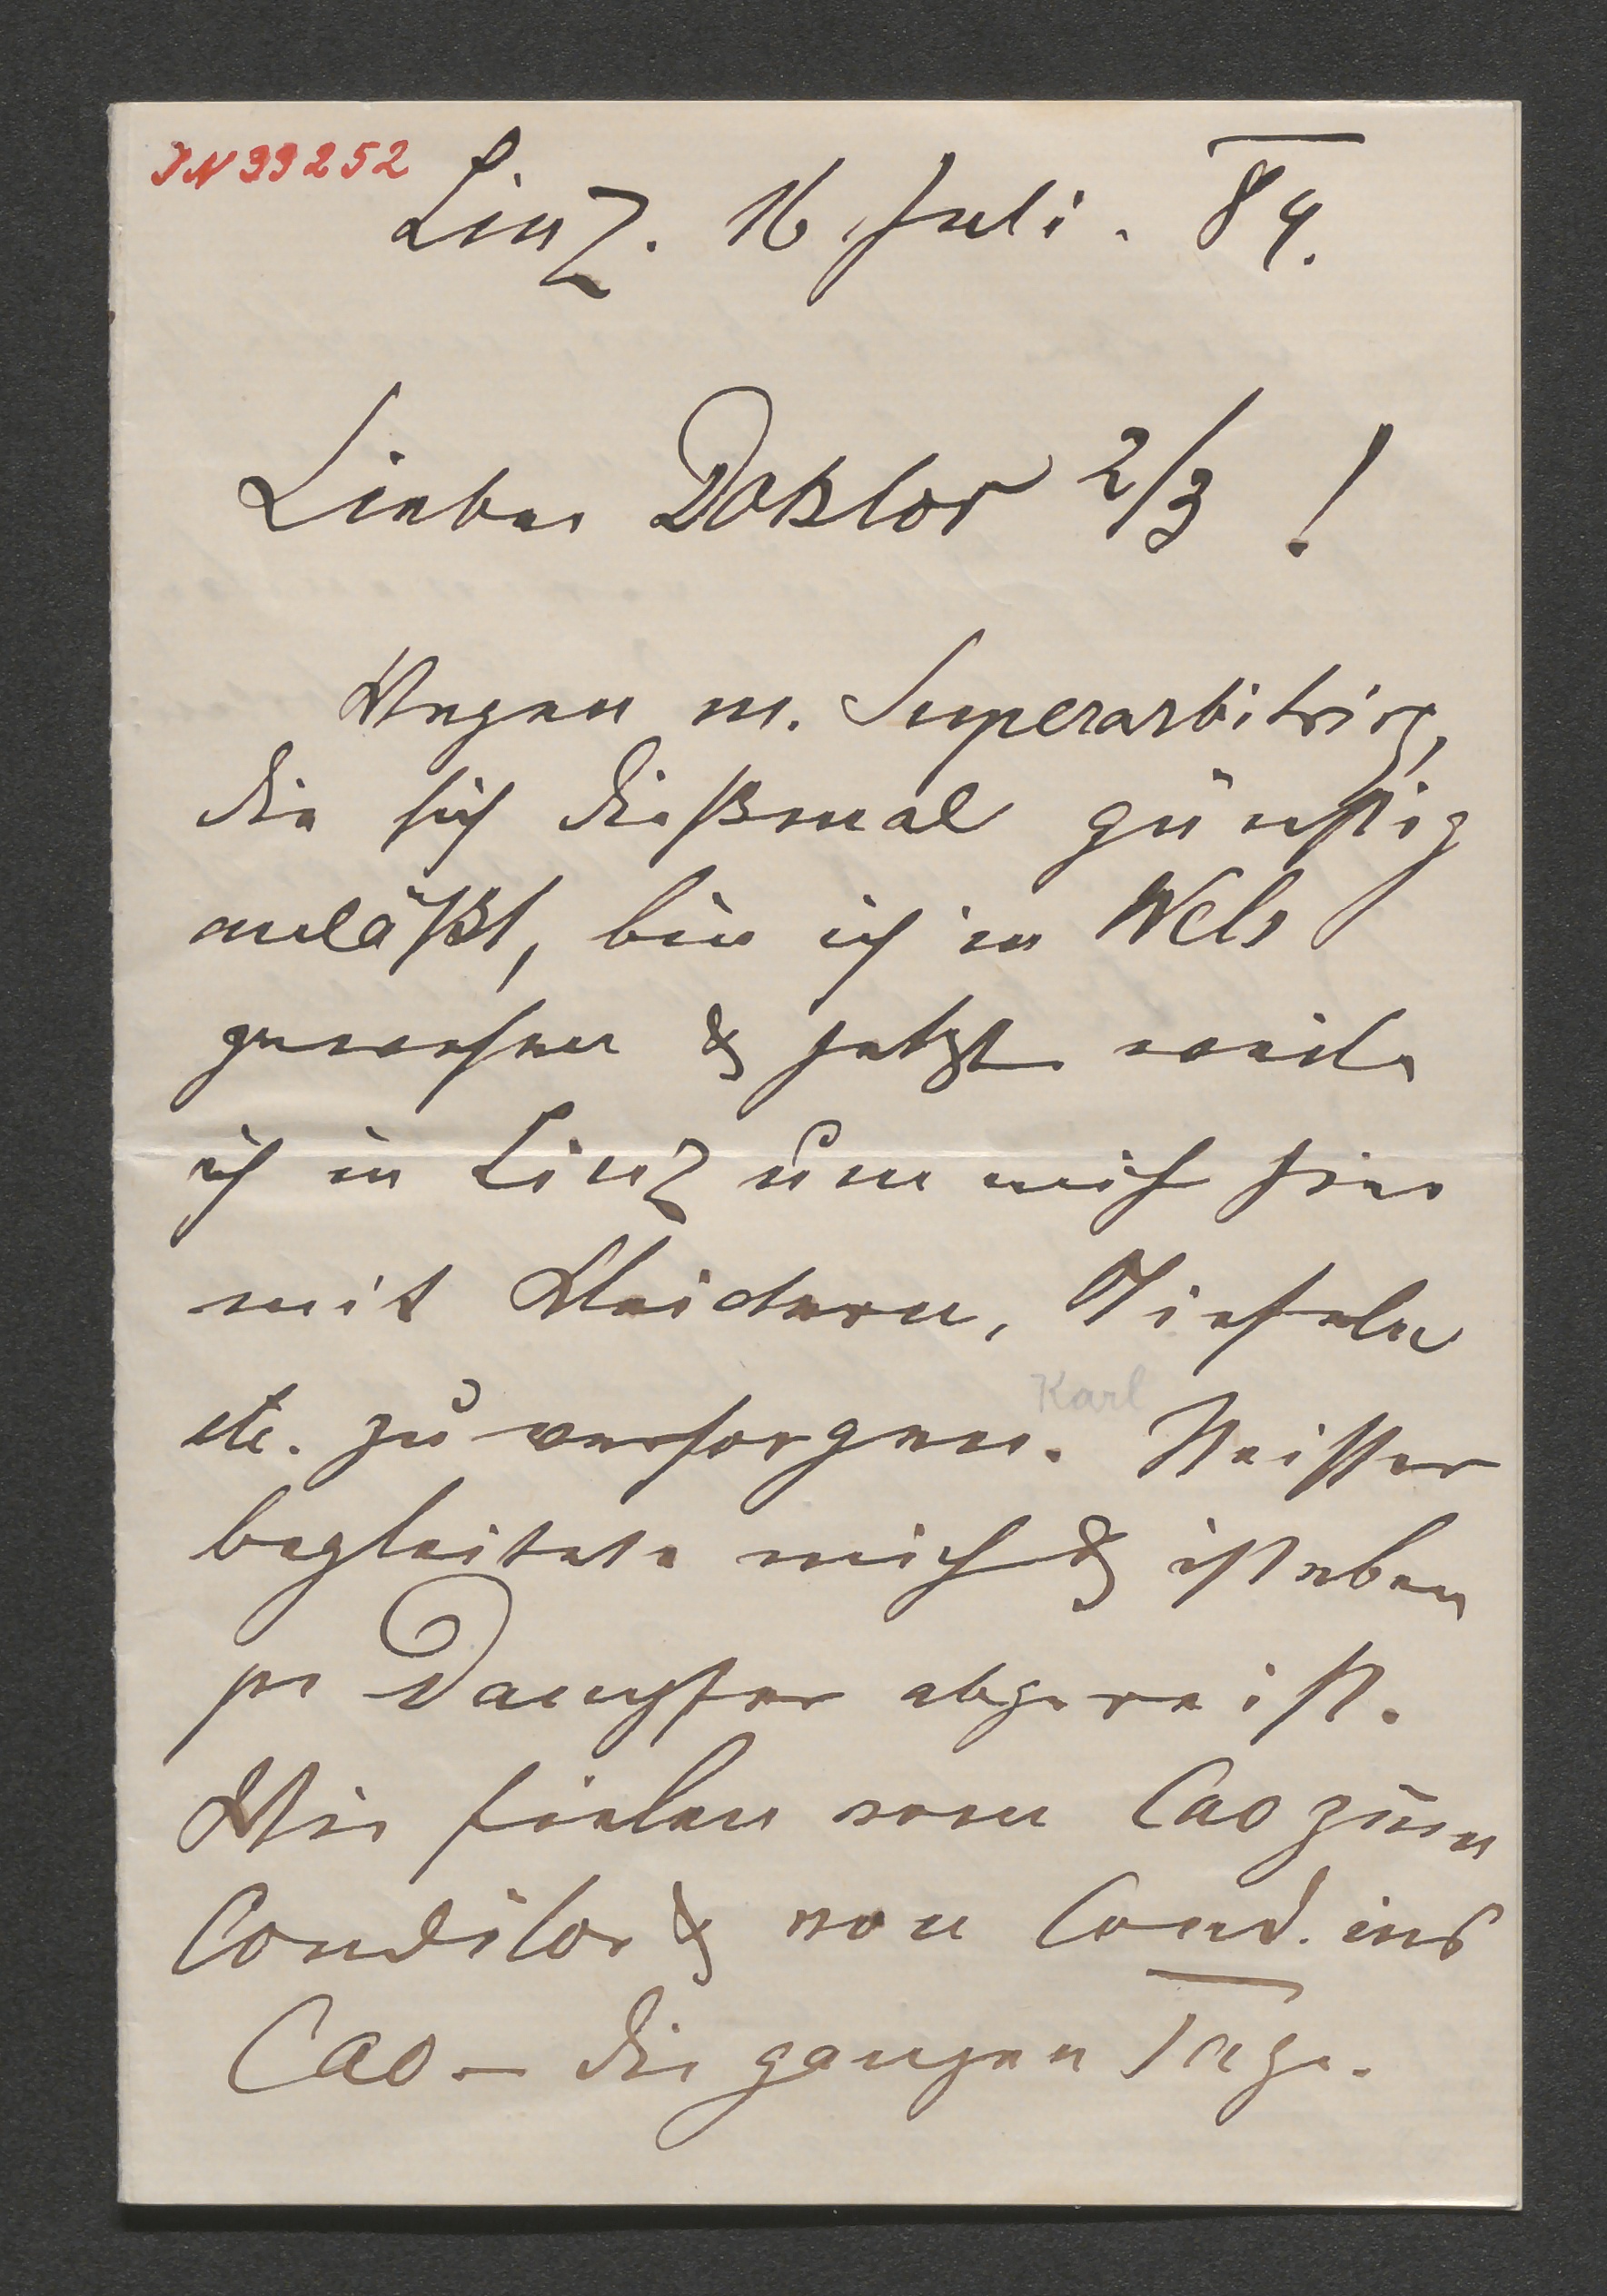 JN 33252
Linz. 16 Juli. 84.
Lieber Doktor 2/3 !
Wegen m. Superarbitrirg,
die sich dießmal günstig
anläßt, bin ich in Wels
gewesen & jetzt weile
ich in Linz um mich hier
mit Kleidern, Stiefeln
Karl
etc. zu versorgen. Meißner
begleitete mich & ist eben
pr Dampfer abgereist.
Wir fielen vom Cao zum
Conditor & von Cond. ins
Cao – die ganzen Tage.